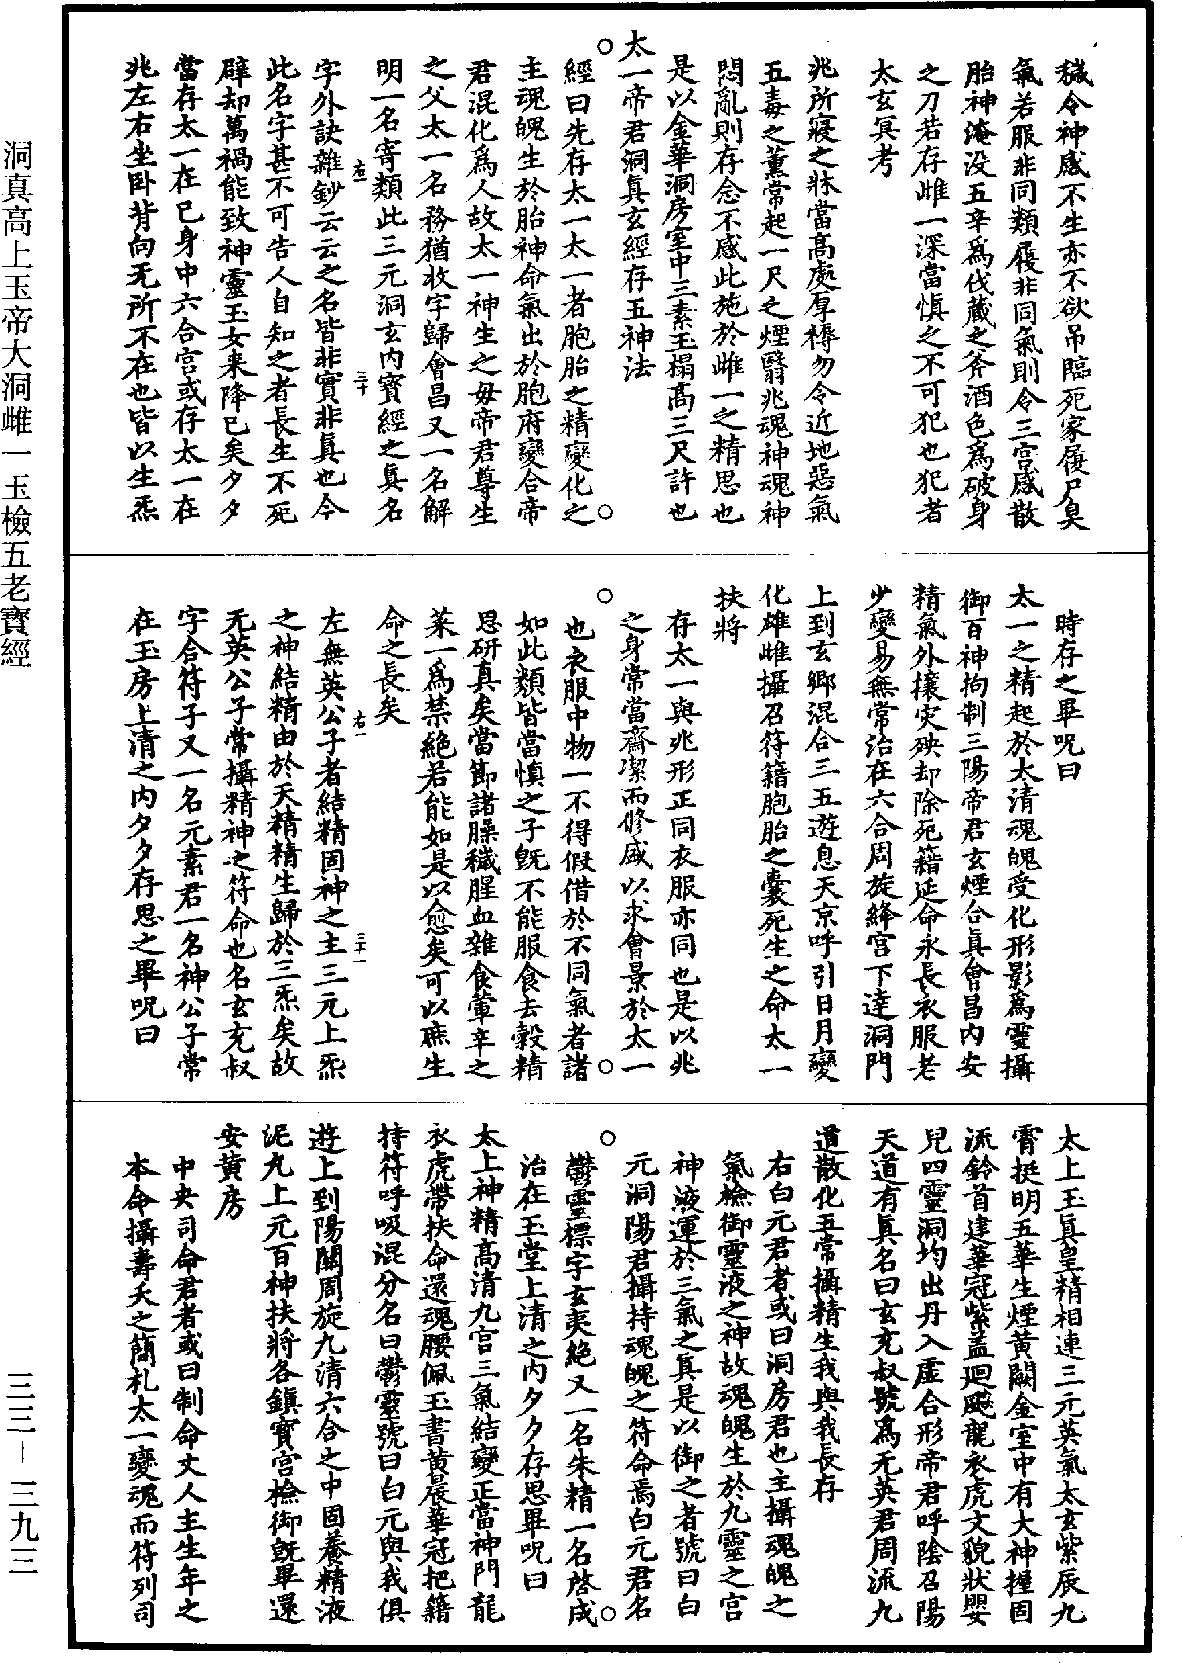 穢令神感不生亦不欲吊臨死家履尸臭
氣若服非同類履非同氣則令三宮感散
胎神淹没五辛爲伐藏之斧酒色爲破身
之刀若存雌一深當慎之不可犯也犯者
太玄冥考
兆所寢之牀當高處厚褥勿令近地惡氣
五毒之薰常起一尺之煙翳兆魂神魂神
悶亂則存念不感此施於雌一之精思也
是以金華洞房室中三素玉榻高三尺許也
太一帝君洞真玄經存五神法
經曰先存太一太一者胞胎之精變化之
主魂魄生於胎神命氣出於胞府變合帝
君混化爲人故太一神生之母帝君尊生
之父太一名務猶收字歸會昌又一名解
明一名寄類此三元洞玄内寶經之真名
左一
三十
字外訣雜鈔云云之名皆非實非真也今
此名字甚不可告人自知之者長生不死
辟却萬禍能致神靈玉女来降已矣夕夕
當存太一在己身中六合宮或存太一在
兆左右坐卧背向无所不在也皆以生炁
時存之畢呪曰
太一之精起於太清魂魄受化形影爲靈攝
御百神拘制三陽帝君玄煙合真會昌内安
精氣外攘灾殃却除死籍延命永長衣服老
少變易無常治在六合周旋絳宮下達洞門
上到玄鄉混合三五遊息天京呼引日月變
化雄雌攝召符籍胞胎之囊死生之命太一
扶將
存太一與兆形正同衣服亦同也是以兆
之身常當齋潔而修感以求會景於太一
也衣服中物一不得假借於不同氣者諸
如此類皆當慎之子既不能服食去穀精
思研真矣當節諸臊穢腥血雜食葷辛之
菜一爲禁絶若能如是以愈矣可以庶生
命之長矣
右一
三十一
左無英公子者結精固神之主三元上炁
之神結精由於天精精生歸於三炁矣故
无英公子常攝精神之符命也名玄充叔
字合符子又一名元素君一名神公子常
在玉房上清之内夕夕存思之畢呪曰
太上玉真皇精相連三元英氣太玄紫辰九
霄挺明五華生煙黃闕金室中有大神握固
流鈴首建華冠紫盖迴飈龍衣虎文貌狀嬰
兒四靈洞均出丹入虛合形帝君呼陰召陽
天道有真名曰玄充叔號爲无英君周流九
道散化五常攝精生我與我長存
右白元君者或曰洞房君也主攝魂魄之
氣檢御靈液之神故魂魄生於九靈之宮
神液運於三氣之真是以御之者號曰白
元洞陽君攝持魂魄之符命焉白元君名
鬱靈標字玄夷絶又一名朱精一名啓成
治在玉堂上清之内夕夕存思畢呪曰
太上神精高清九宮三氣結變正當神門龍
衣虎帶扶命還魂腰佩玉書黃晨華冠把籍
持符呼吸混分名曰鬱靈號曰白元與我俱
遊上到陽關周旋九清六合之中固養精液
泥丸上元百神扶將各鎮寶宮檢御既畢還
安黃房
中央司命君者或曰制命丈人主生年之
本命攝壽夭之簡札太一變魂而符列司
洞真高上玉帝大洞雌一玉檢五老寶經
三三—三九三